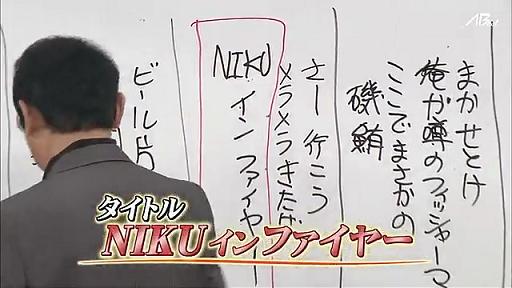 まかせとけ
俺が噂のフィッシャーマ
ここでまさかの
磯鮪
さー行こう
メラメラきたぜ
NIKU
インファイヤー
ビール片
タイトル
NIKUインファイヤー